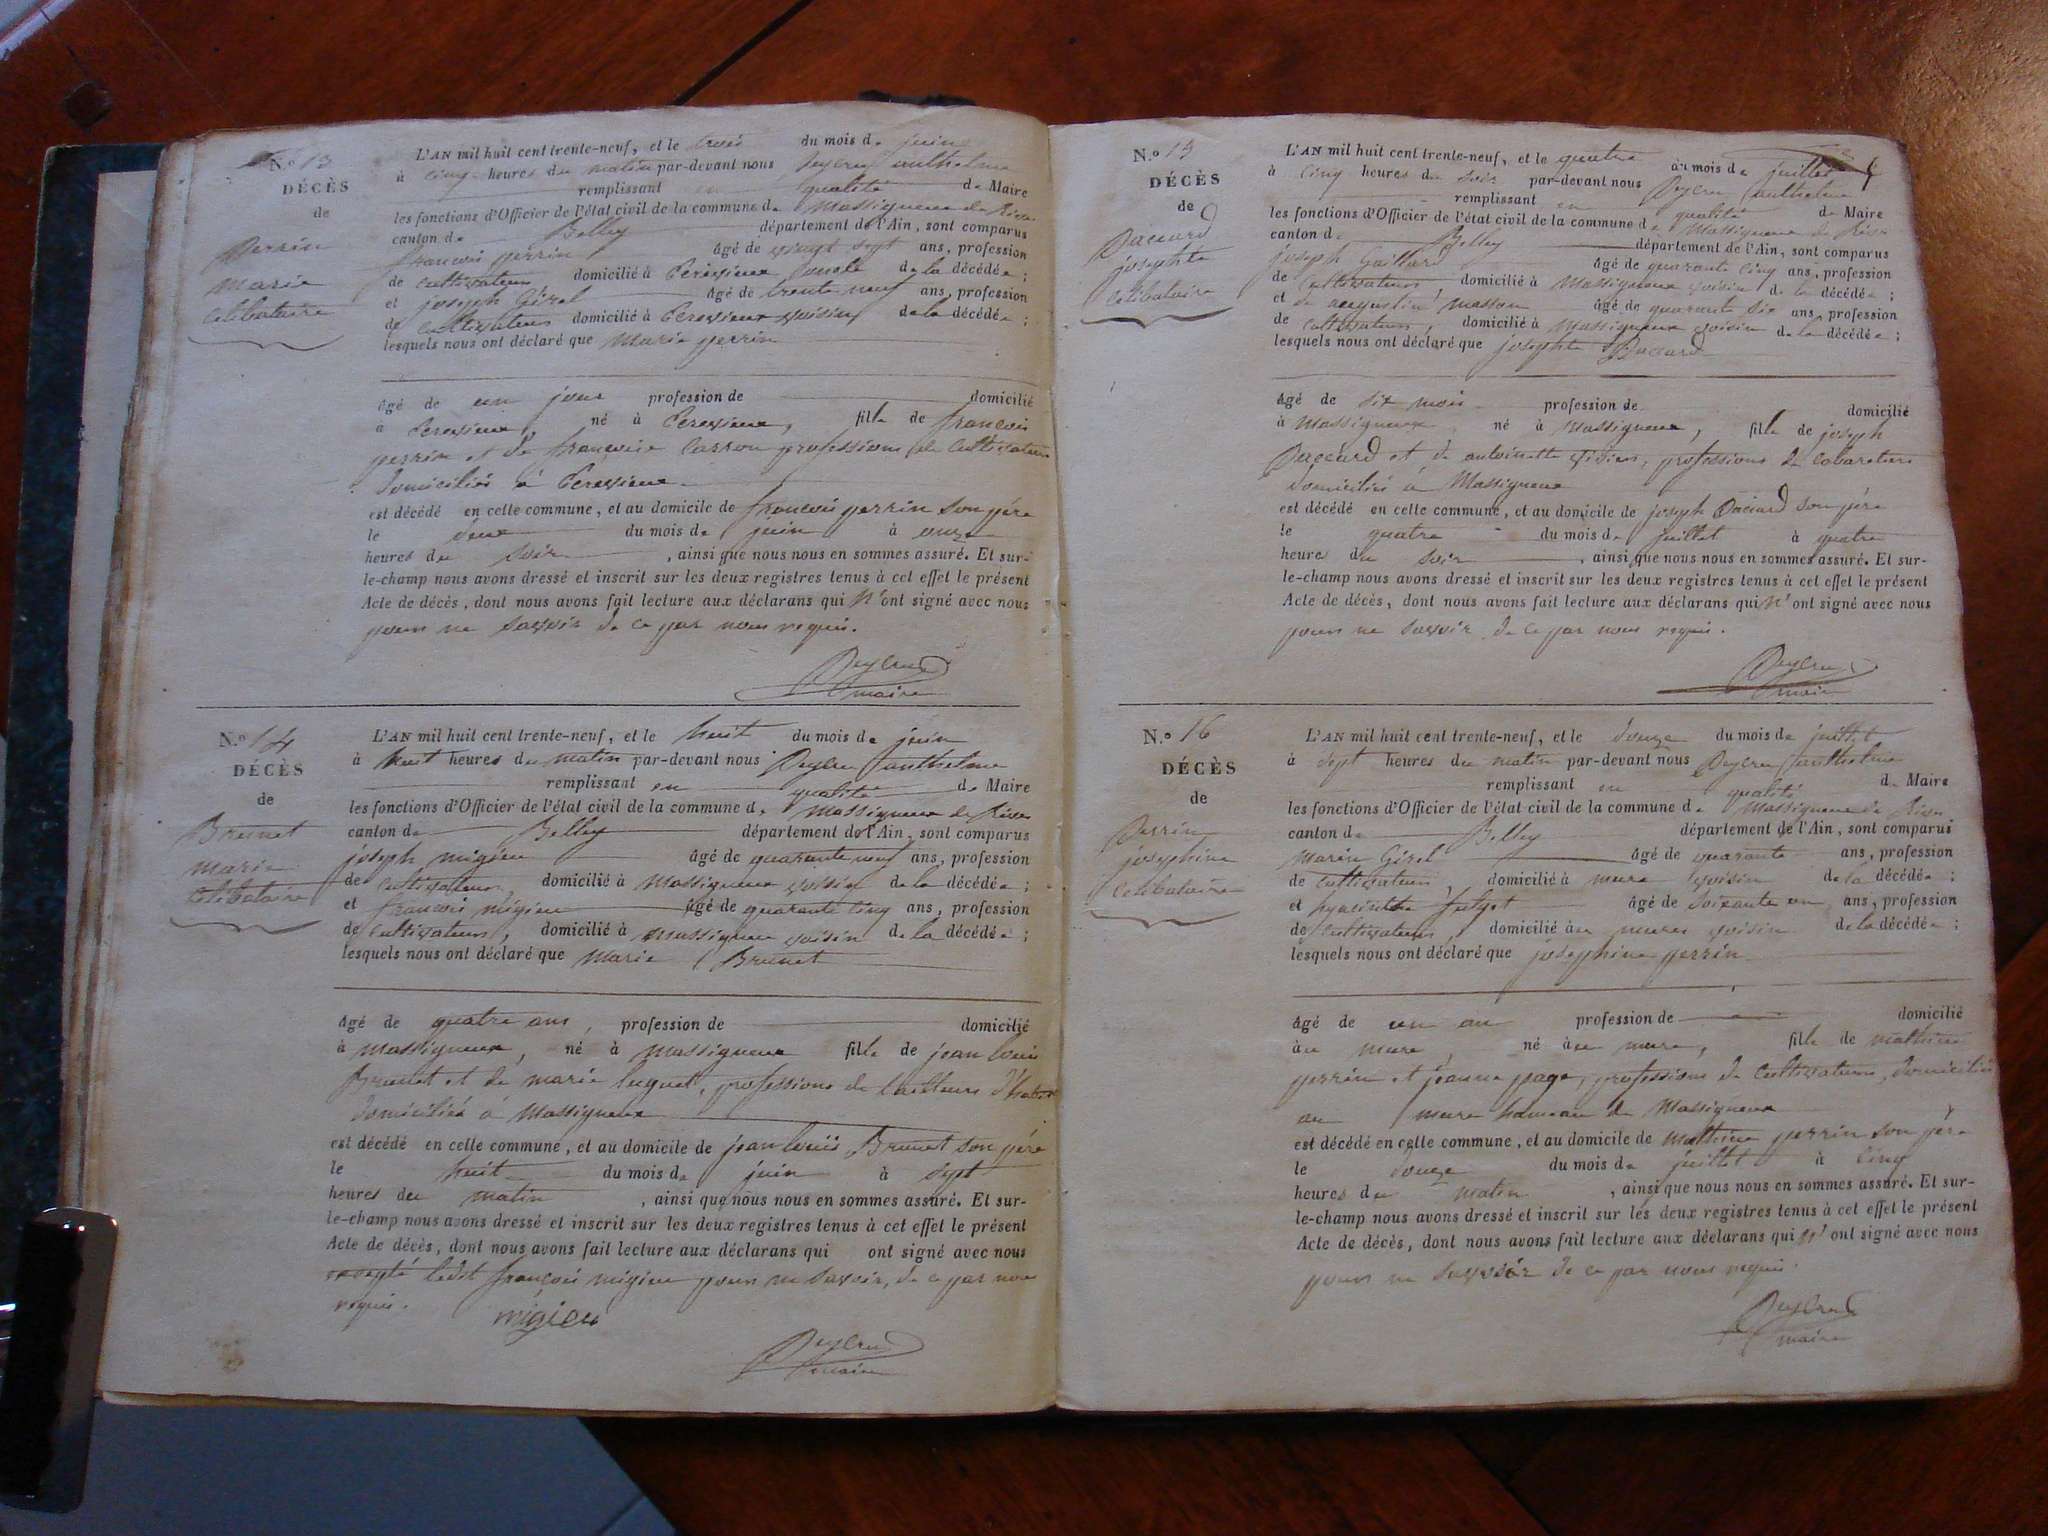 N.º 13
DÉCÈS
de
Perrin
marie
célibataire
L'AN mil huit cent trente-neuf, et le trois du mois de juin
à cinq heures du matin par-devant nous PeyCru anthelme
remplissant en qualité de Maire
les fonctions d'Officier de l'état civil de la commune de Massigneux de Rives
canton de Belley département de l'Ain, sont comparus
francois perrin âgé de vingt sept ans, profession
de cultivateur domicilié à oncle de la décédée ;
et joseph Girel âgé de trente neuf ans, profession
de cultivateur domicilié à voisin de la décédée ;
lesquels nous ont déclaré que Marie perrin
âgé de un jour profession de domicilié
à né à fille de francois
perrin et de francoise Carron professions de cultivateurs
domiciliés à
est décédé en celle commune, et au domicile de francois perrin son père
le deux du mois de juin à onze
heures du soir, ainsi que nous nous en sommes assuré. Et sur-
le-champ nous avons dressé et inscrit sur les deux registres tenus à cet effet le présent
Acte de décès, dont nous avons fait lecture aux déclarans qui n'ont signé avec nous
pour ne savoir de ce par nous requis.
maire
N.º 14
DÉCÈS
de
Brunet
marie
célibataire
L'AN mil huit cent trente-neuf, et le huit du mois de juin
à huit heures du matin par-devant nous PeyCru anthelme
remplissant en qualité de Maire
les fonctions d'Officier de l'état civil de la commune de Massigneux de Rives
canton de Belley département de l'Ain, sont comparus
joseph migieu âgé de quarante neuf ans, profession
de cultivateur, domicilié à Massigneux voisin de la décédée ;
et francois migieu âgé de quarante cinq ans, profession
de cultivateur, domicilié à massigneux voisin de la décédée ;
lesquels nous ont déclaré que Marie Brunet
âgé de quatre ans, profession de domicilié
à Massigneux, né à Massigneux fille de jean louis
Brunet et de marie luquet, professions de tailleurs d'habits
domiciliés à Massigneux
est décédé en celle commune, et au domicile de jean louis Brunet son père
le huit du mois de juin à sept
heures du matin, ainsi que nous nous en sommes assuré. Et sur-
le-champ nous avons dressé et inscrit sur les deux registres tenus à cet effet le présent
Acte de décès, dont nous avons fait lecture aux déclarans qui ont signé avec nous
excepté ledit francois migieu pour ne savoir, de ce par nous
requis.
migieu
maire
N.º 15
DÉCÈS
de
Daccard
josephte
célibataire
L'AN mil huit cent trente-neuf, et le quatre du mois de juillet
à cinq heures du soir par-devant nous PeyCru anthelme
remplissant en qualité de Maire
les fonctions d'Officier de l'état civil de la commune de Massigneux de Rives
canton de Belley département de l'Ain, sont comparus
joseph Gaillard âgé de quarante cinq ans, profession
de cultivateur, domicilié à Massigneux voisin de la décédée ;
et de augustin masson âgé de quarante six ans, profession
de cultivateur, domicilié à Massigneux voisin de la décédée ;
lesquels nous ont déclaré que josephte Daccard
âgé de six mois profession de domicilié
à Massigneux né à Massigneux, fille de joseph
Daccard et de antoinette, professions de cabaretiers
domiciliés à Massigneux
est décédé en celle commune, et au domicile de joseph Daccard son père
le quatre du mois de juillet à quatre
heures du soir, ainsi que nous nous en sommes assuré. Et sur-
le-champ nous avons dressé et inscrit sur les deux registres tenus à cet effet le présent
Acte de décès, dont nous avons fait lecture aux déclarans qui n'ont signé avec nous
pour ne savoir de ce par nous requis.
maire
N.º 16
DÉCÈS
de
Perrin
josephine
célibataire
L'AN mil huit cent trente-neuf, et le douze du mois de juillet
à sept heures du matin par-devant nous PeyCru anthelme
remplissant en qualité de Maire
les fonctions d'Officier de l'état civil de la commune de Massigneux de Rives
canton de Belley département de l'Ain, sont comparus
Marin Girel âgé de quarante ans, profession
de cultivateur domicilié à mure voisin de la décédée ;
et hyacinthe âgé de soixante un ans, profession
de cultivateur, domicilié au mures voisin de la décédée ;
lesquels nous ont déclaré que josephine perrin
âgé de un an profession de domicilié
au mure né au mure, fille de mathieu
perrin et jeanne page, professions de cultivateurs, domiciliés
au mure hameau de Massigneux
est décédé en celle commune, et au domicile de mathieu perrin son père
le douze du mois de juillet à cinq
heures du matin, ainsi que nous nous en sommes assuré. Et sur-
le-champ nous avons dressé et inscrit sur les deux registres tenus à cet effet le présent
Acte de décès, dont nous avons fait lecture aux déclarans qui n'ont signé avec nous
pour ne savoir de ce par nous requis.
maire